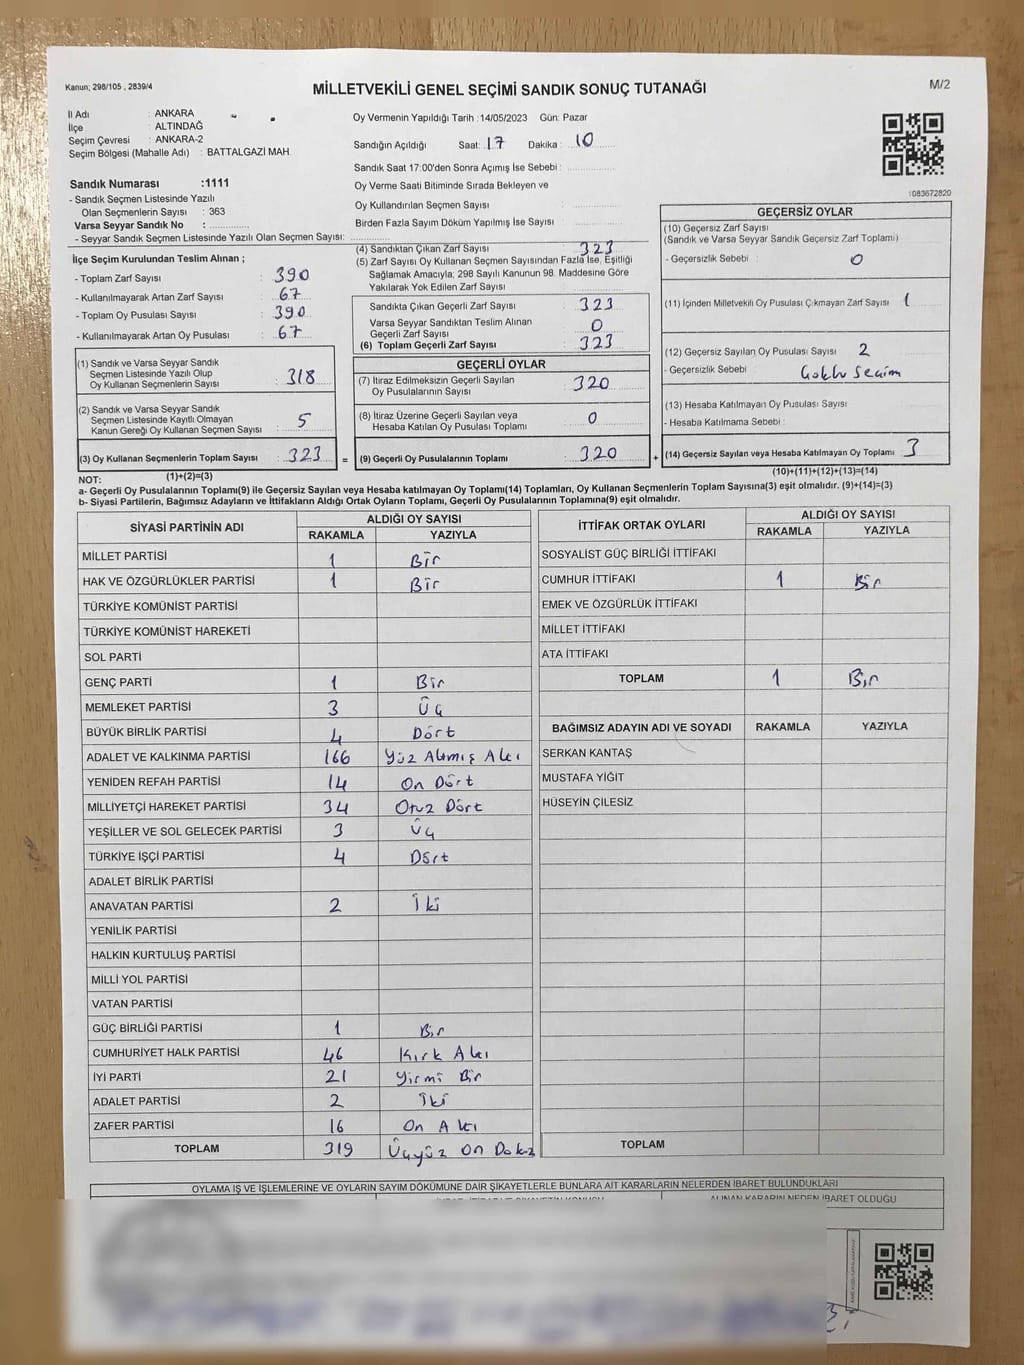 Kanun; 298/105 , 2839/4
MİLLETVEKİLİ GENEL SEÇİMİ SANDIK SONUÇ TUTANAĞI
M/2
İl Adı : ANKARA
İlçe : ALTINDAĞ
Seçim Çevresi : ANKARA-2
Seçim Bölgesi (Mahalle Adı) : BATTALGAZİ MAH.
Oy Vermenin Yapıldığı Tarih :14/05/2023 Gün: Pazar
Sandığın Açıldığı Saat: 17 Dakika : 10
Sandık Saat 17:00'den Sonra Açımış İse Sebebi :
Oy Verme Saati Bitiminde Sırada Bekleyen ve
Oy Kullandırılan Seçmen Sayısı :
Birden Fazla Sayım Döküm Yapılmış İse Sayısı :
1083672820
Sandık Numarası :1111
- Sandık Seçmen Listesinde Yazılı
Olan Seçmenlerin Sayısı : 363
Varsa Seyyar Sandık No :
- Seyyar Sandık Seçmen Listesinde Yazılı Olan Seçmen Sayısı:
İlçe Seçim Kurulundan Teslim Alınan ;
- Toplam Zarf Sayısı : 390
- Kullanılmayarak Artan Zarf Sayısı : 67
- Toplam Oy Pusulası Sayısı : 390
- Kullanılmayarak Artan Oy Pusulası : 67
(1) Sandık ve Varsa Seyyar Sandık
Seçmen Listesinde Yazılı Olup
Oy Kullanan Seçmenlerin Sayısı : 318
(2) Sandık ve Varsa Seyyar Sandık
Seçmen Listesinde Kayıtlı Olmayan
Kanun Gereği Oy Kullanan Seçmen Sayısı : 5
(3) Oy Kullanan Seçmenlerin Toplam Sayısı : 323 =
(4) Sandıktan Çıkan Zarf Sayısı : 323
(5) Zarf Sayısı Oy Kullanan Seçmen Sayısından Fazla İse, Eşitliği
Sağlamak Amacıyla; 298 Sayılı Kanunun 98. Maddesine Göre
Yakılarak Yok Edilen Zarf Sayısı :
Sandıkta Çıkan Geçerli Zarf Sayısı : 323
Varsa Seyyar Sandıktan Teslim Alınan
Geçerli Zarf Sayısı : 0
(6) Toplam Geçerli Zarf Sayısı : 323
GEÇERLİ OYLAR
(7) İtiraz Edilmeksizin Geçerli Sayılan
Oy Pusulalarının Sayısı : 320
(8) İtiraz Üzerine Geçerli Sayılan veya
Hesaba Katılan Oy Pusulası Toplamı : 0
(9) Geçerli Oy Pusulalarının Toplamı : 320 +
GEÇERSİZ OYLAR
(10) Geçersiz Zarf Sayısı
(Sandık ve Varsa Seyyar Sandık Geçersiz Zarf Toplamı)
- Geçersizlik Sebebi : 0
(11) İçinden Milletvekili Oy Pusulası Çıkmayan Zarf Sayısı : 1
(12) Geçersiz Sayılan Oy Pusulası Sayısı : 2
- Geçersizlik Sebebi : Çoklu Seçim
(13) Hesaba Katılmayan Oy Pusulası Sayısı :
- Hesaba Katılmama Sebebi :
(14) Geçersiz Sayılan veya Hesaba Katılmayan Oy Toplamı : 3
(10)+(11)+(12)+(13)=(14)
NOT: (1)+(2)=(3)
a- Geçerli Oy Pusulalarının Toplamı(9) ile Geçersiz Sayılan veya Hesaba Katılmayan Oy Toplamı(14) Toplamları, Oy Kullanan Seçmenlerin Toplam Sayısına(3) eşit olmalıdır. (9)+(14)=(3)
b- Siyasi Partilerin, Bağımsız Adayların ve İttifakların Aldığı Ortak Oyların Toplamı, Geçerli Oy Pusulalarının Toplamına(9) eşit olmalıdır.
SİYASİ PARTİNİN ADI ALDIĞI OY SAYISI
RAKAMLA YAZIYLA
MİLLET PARTİSİ 1 Bir
HAK VE ÖZGÜRLÜKLER PARTİSİ 1 Bir
TÜRKİYE KOMÜNİST PARTİSİ
TÜRKİYE KOMÜNİST HAREKETİ
SOL PARTİ
GENÇ PARTİ 1 Bir
MEMLEKET PARTİSİ 3 Üç
BÜYÜK BİRLİK PARTİSİ 4 Dört
ADALET VE KALKINMA PARTİSİ 166 Yüz Altmış Altı
YENİDEN REFAH PARTİSİ 14 On Dört
MİLLİYETÇİ HAREKET PARTİSİ 34 Otuz Dört
YEŞİLLER VE SOL GELECEK PARTİSİ 3 Üç
TÜRKİYE İŞÇİ PARTİSİ 4 Dört
ADALET BİRLİK PARTİSİ
ANAVATAN PARTİSİ 2 İki
YENİLİK PARTİSİ
HALKIN KURTULUŞ PARTİSİ
MİLLİ YOL PARTİSİ
VATAN PARTİSİ
GÜÇ BİRLİĞİ PARTİSİ 1 Bir
CUMHURİYET HALK PARTİSİ 46 Kırk Altı
İYİ PARTİ 21 Yirmi Bir
ADALET PARTİSİ 2 İki
ZAFER PARTİSİ 16 On Altı
TOPLAM 319 Üçyüz On Dokuz
İTTİFAK ORTAK OYLARI ALDIĞI OY SAYISI
RAKAMLA YAZIYLA
SOSYALİST GÜÇ BİRLİĞİ İTTİFAKI
CUMHUR İTTİFAKI 1 Bir
EMEK VE ÖZGÜRLÜK İTTİFAKI
MİLLET İTTİFAKI
ATA İTTİFAKI
TOPLAM 1 Bir
BAĞIMSIZ ADAYIN ADI VE SOYADI RAKAMLA YAZIYLA
SERKAN KANTAŞ
MUSTAFA YİĞİT
HÜSEYİN ÇİLESİZ
TOPLAM
OYLAMA İŞ VE İŞLEMLERİNE VE OYLARIN SAYIM DÖKÜMÜNE DAİR ŞİKAYETLERLE BUNLARA AİT KARARLARIN NELERDEN İBARET BULUNDUKLARI
ALINAN KARARIN NEDEN İBARET OLDUĞU